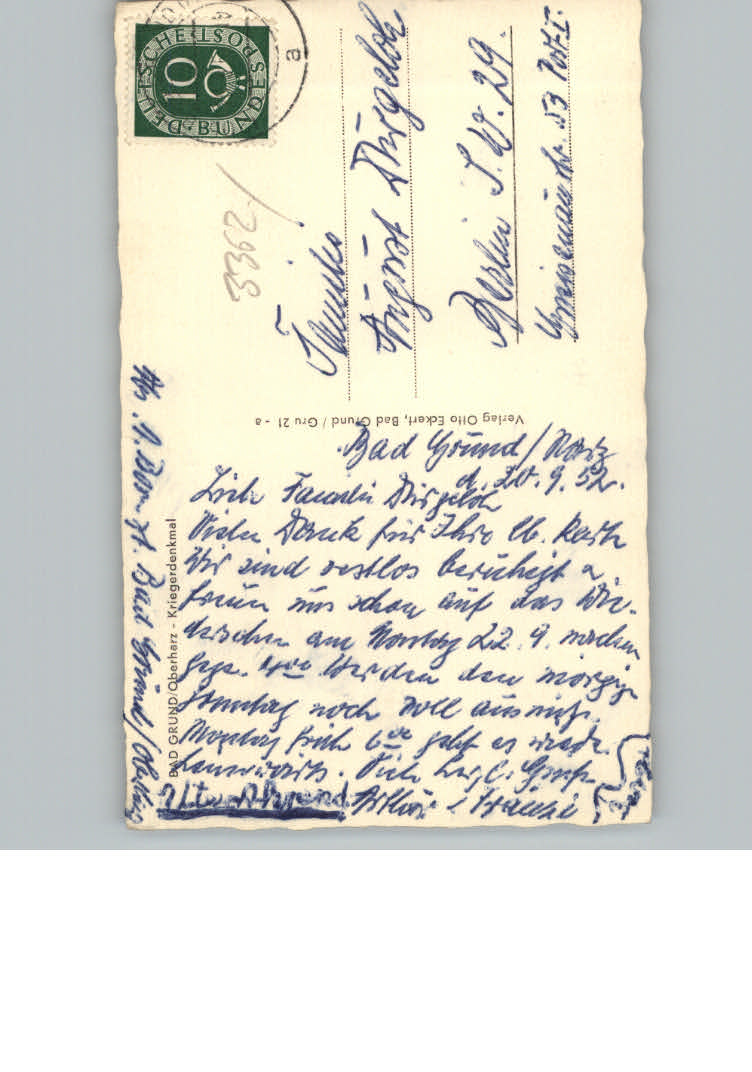 DEUTSCHE BUNDESPOST
10
a
3362/
Familie
August Dürgeloh
Berlin S.W. 29.
Gneisenaustr. 53 Port. I.
Verlag Otto Eckert, Bad Grund / Gru 21 - a
BAD GRUND/Oberharz - Kriegerdenkmal
Bad Grund/Harz
d. 20. 9. 52.
Liebe Familie Dürgeloh
Vielen Dank für Ihre lb. Karte
Wir sind restlos beruhigt u.
freuen uns schon auf das Wie-
dersehen am Montag 22. 9. nachm
gegen 4 Werden den morgigen
Sonntag noch voll ausnutz.
Montag früh 6 geht es wieder
heimwärts. Viele herzl. Grüße
Arthur
Abs. Bad Grund/Oberharz